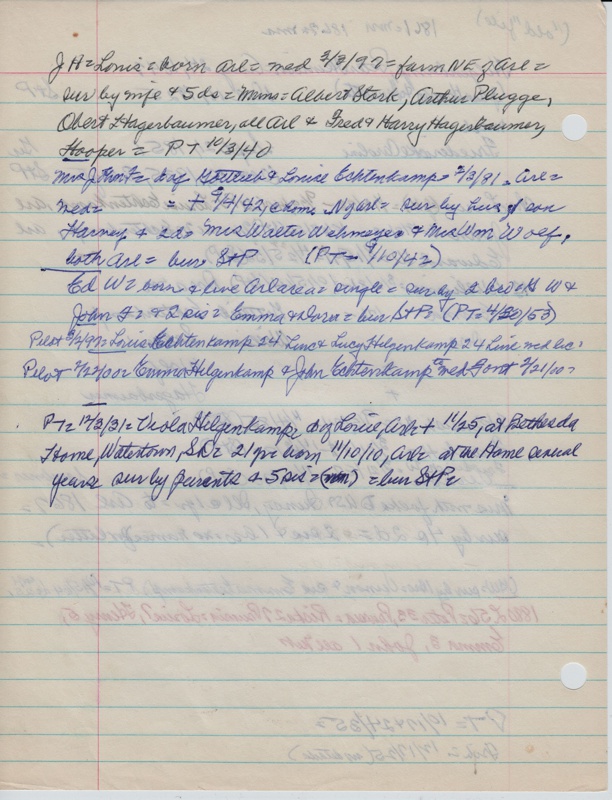 J H = Louis = born Arl = med 3/3/97 = farm NE of Arl =
sur by wife & 5 ds = Mmes = Albert Stork, Arthur Plugge,
Obert Hagerbaumer, all Arl & Fred & Harry Hagerbaumer,
Hooper = PT 10/3/40
Mrs John F = dag Gottlieb & Louise Echtenkamp = 2/3/81 = Arl =
med = = + 9/4/42, home N of Arl = sur by hus, 1 son
Harvey & 2 ds = Mrs Walter Wehmeyer & Mrs Wm Woef,
both Arl = bur StP (PT = 9/10/42)
Ed W = born & live Arl area = single = sur by 2 bro = G W &
John F = & 2 sis = Emma & Dora = bur StP = (PT = 4/30/53)
Pilot 3/4/97 = Louis Echtenkamp 24 Linc & Lucy Hilgenkamp 24 Linc med lic =
Pilot 2/22/00 = Emma Hilgenkamp & John Echtenkamp med Font 2/21/00 =
PT = 12/3/31 = Viola Hilgenkamp, dag Louie, Arl = + 11/25, at Bethesda
Home, Watertown, SD = 21 yr = born 11/10/10, Arl = at the Home several
years sur by parents & 5 sis = (nm) = bur StP =